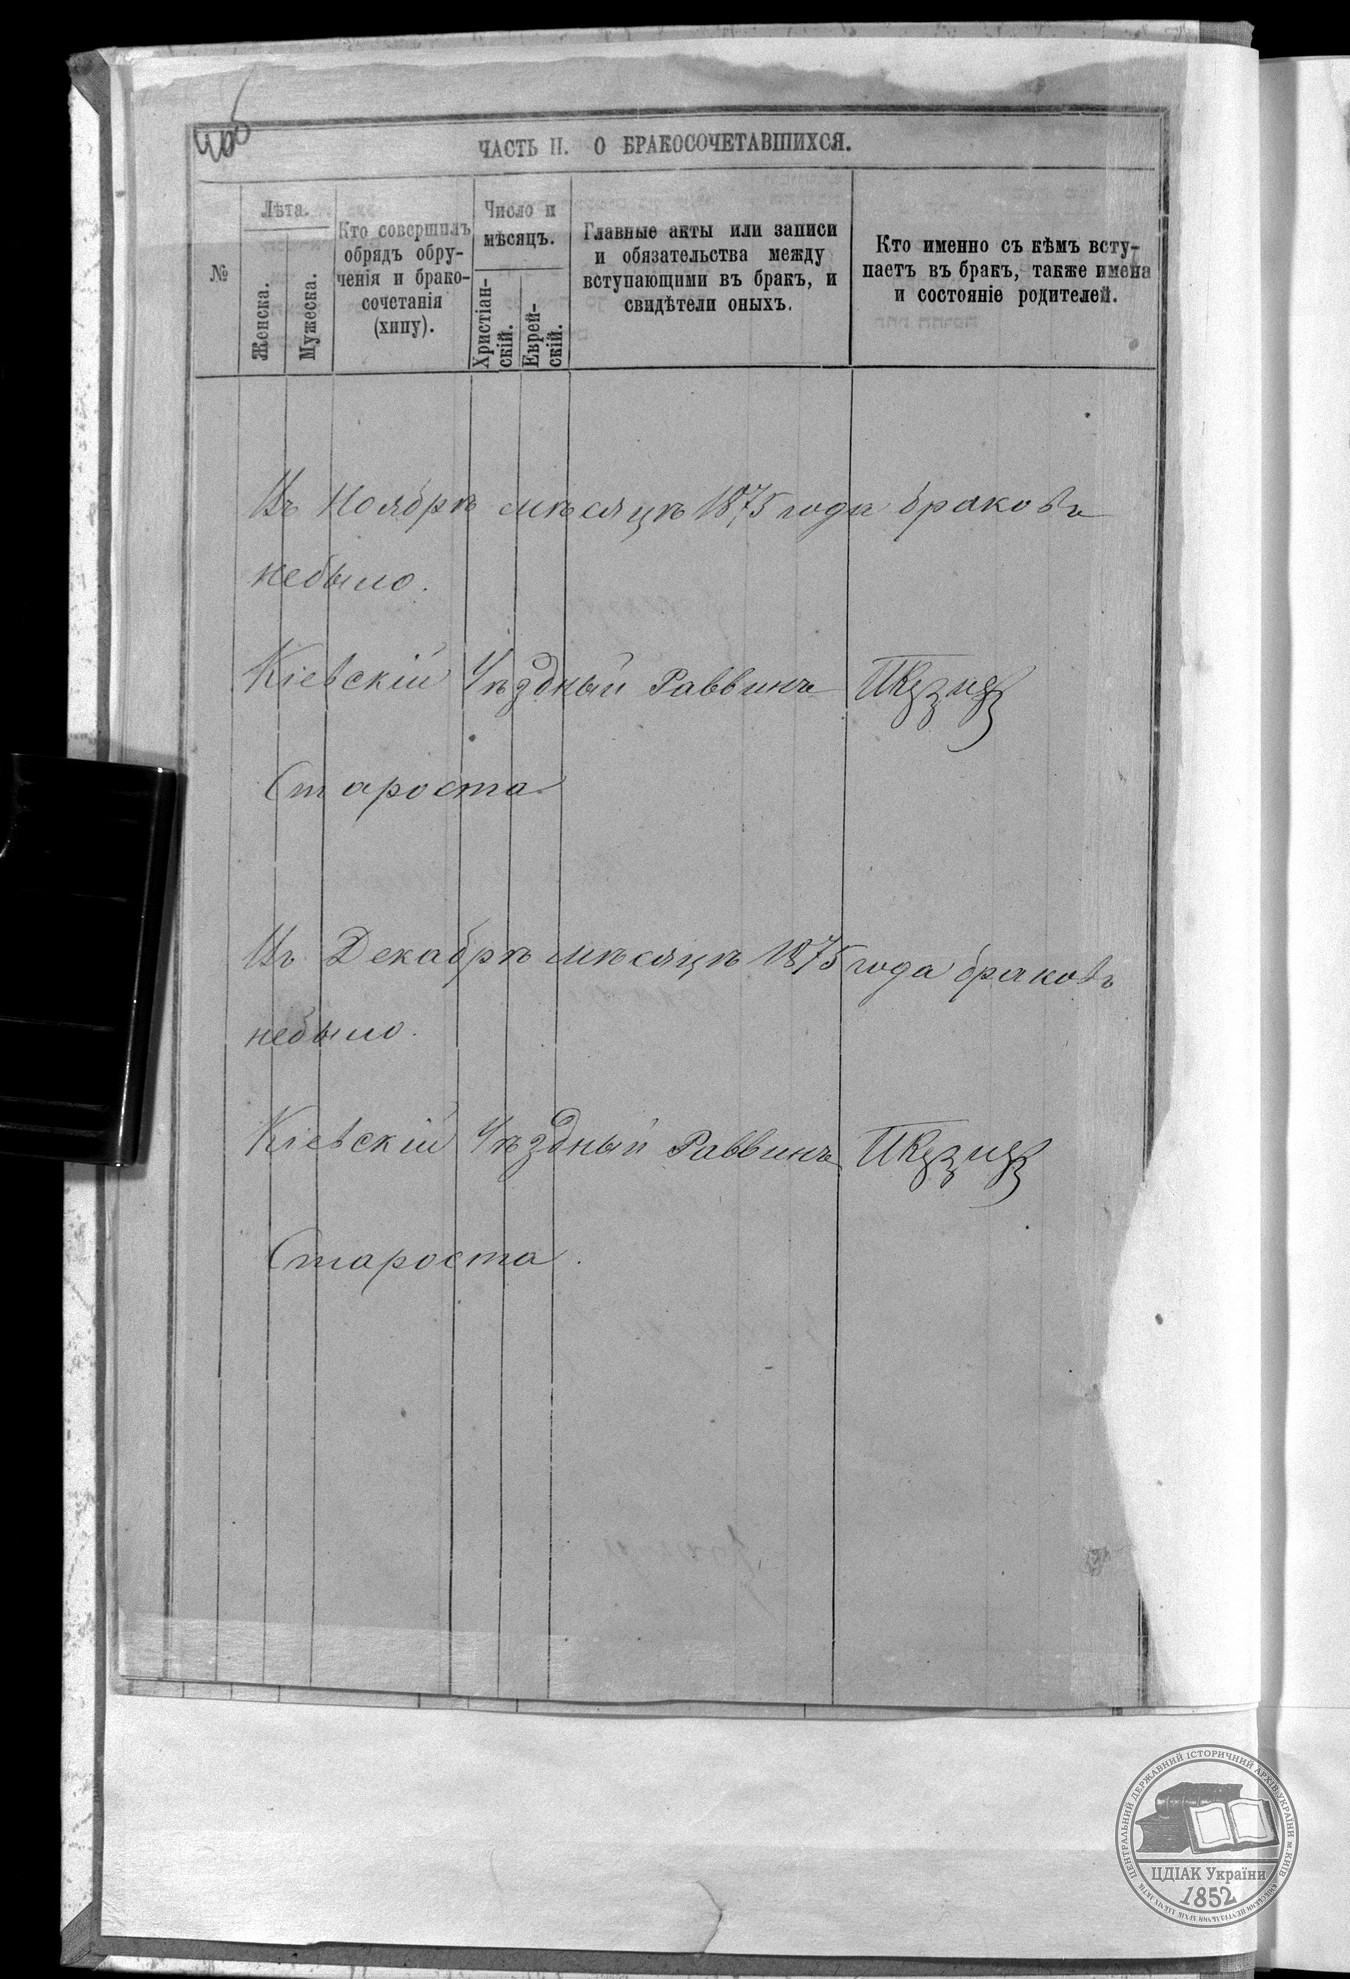 ЧАСТЬ II. О БРАКОСОЧЕТАВШИХСЯ.
№
Лѣта.
Женска.
Мужеска.
Кто совершилъ
обрядъ обру-
ченія и брако-
сочетанія
(хипу).
Число и
мѣсяцъ.
Христіан-
скій.
Еврей-
скій.
Главные акты или записи
и обязательства между
вступающими въ бракъ, и
свидѣтели оныхъ.
Кто именно съ кѣмъ всту-
паетъ въ бракъ, также имена
и состояніе родителей.
Въ Ноябрѣ мѣсяцѣ 1875 года браковъ
небыло.
Кіевскій Уѣздный Раввинъ
Староста
Въ Декабрѣ мѣсяцѣ 1875 года браковъ
небыло.
Кіевскій Уѣздный Раввинъ
Староста.
ЦЕНТРАЛЬНИЙ ДЕРЖАВНИЙ ІСТОРИЧНИЙ АРХІВ УКРАЇНИ м. КИЇВ
ЦДІАК України
1852